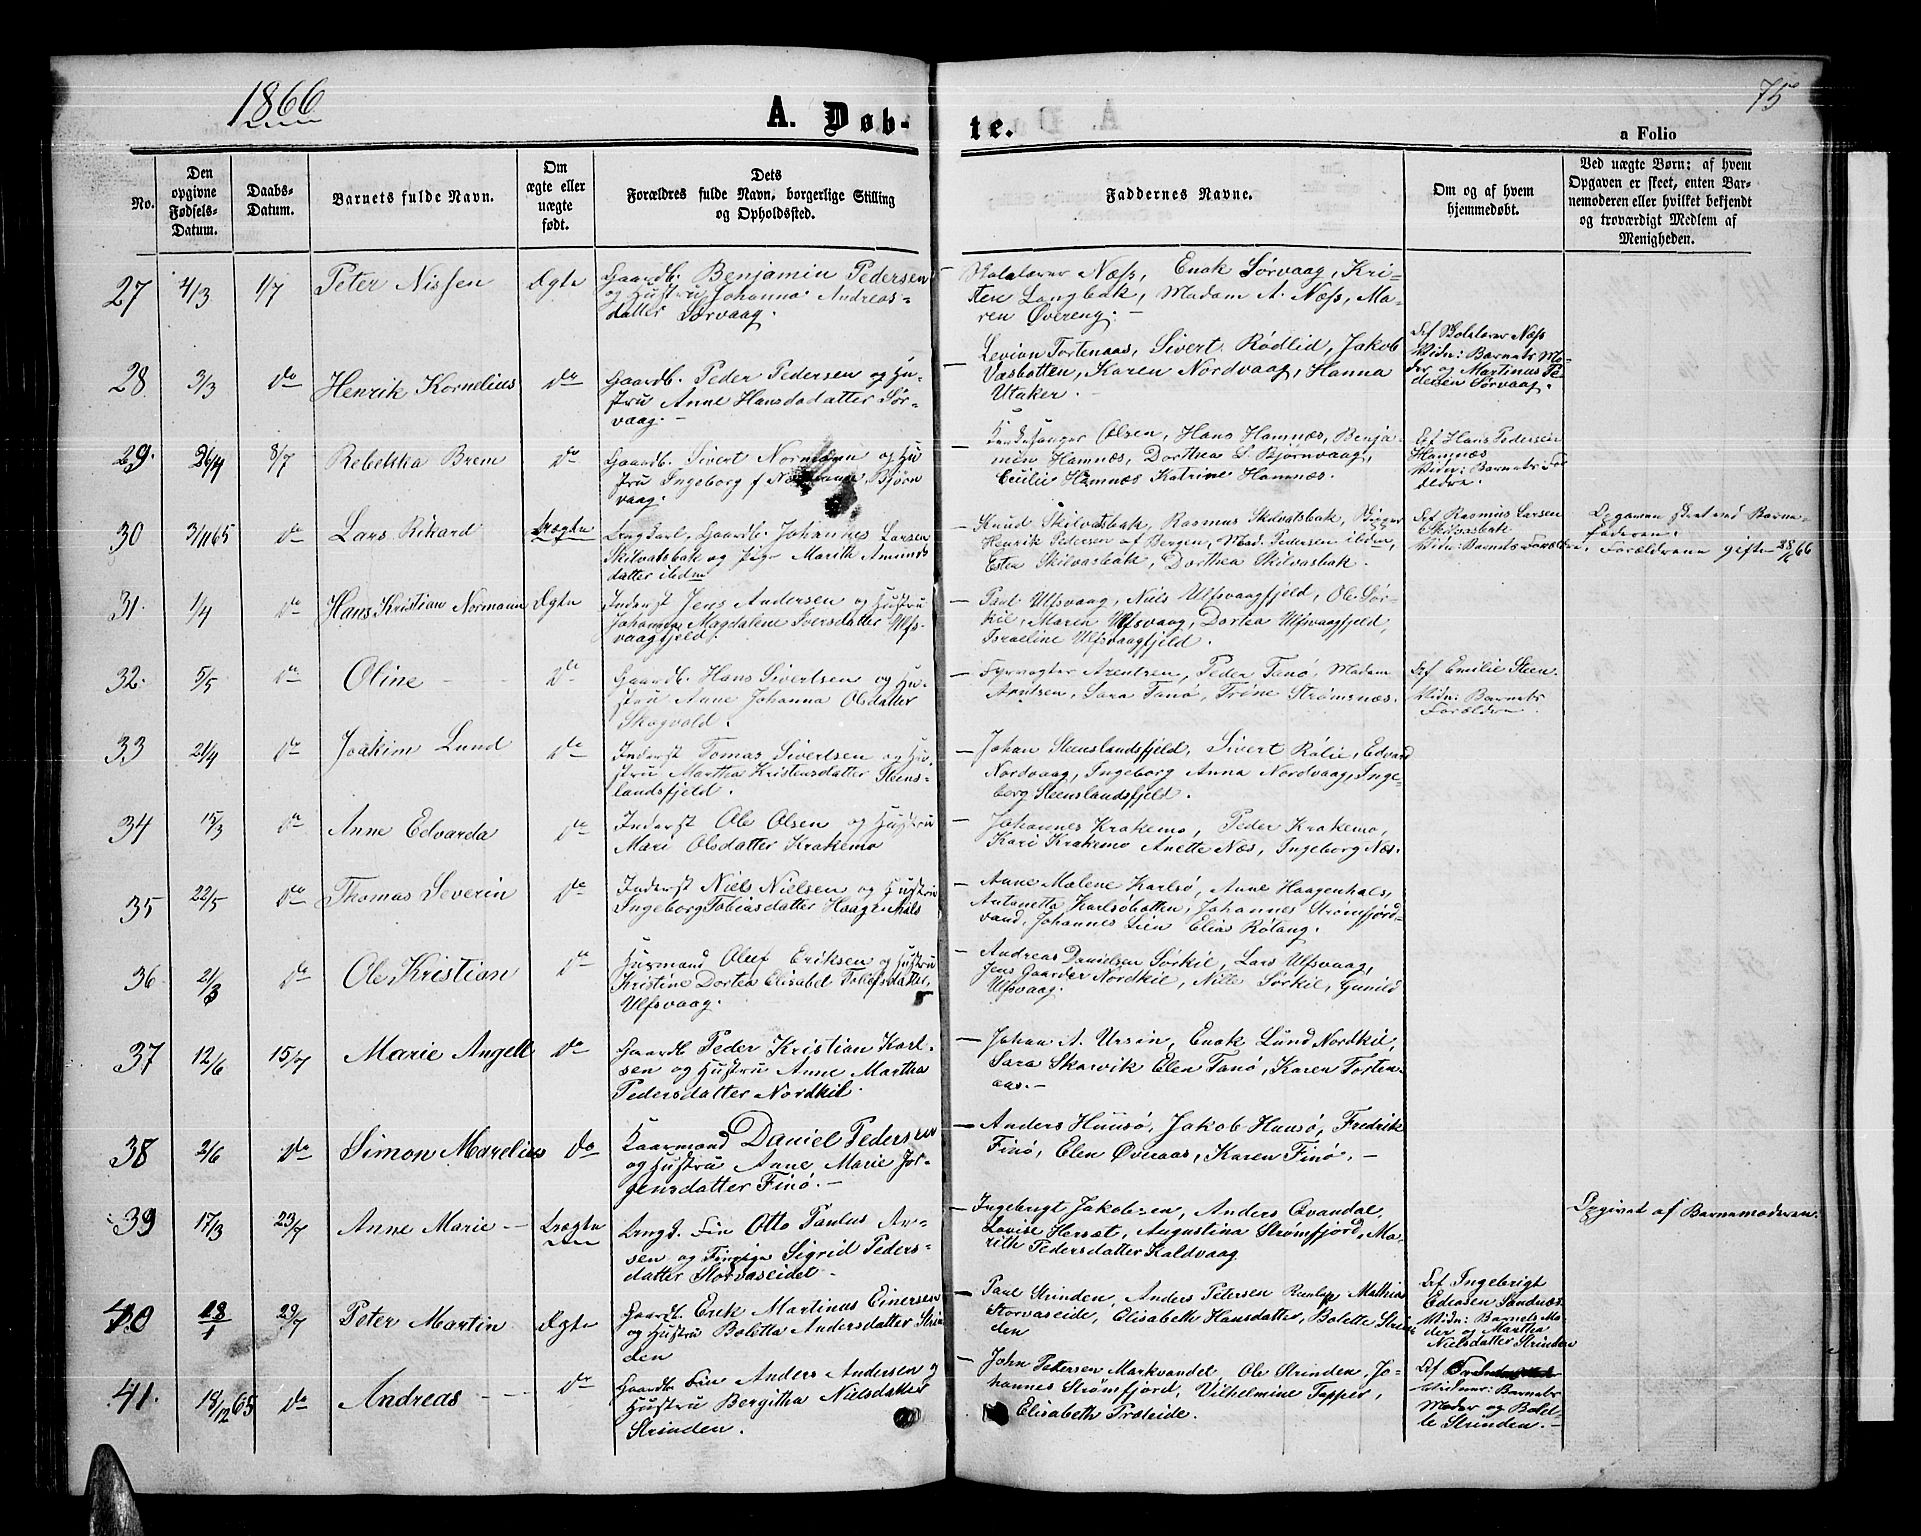 1866
75
A. Døb-
te.
a Folio
No.
Den
opgivne
Fødsels-
Datum.
Daabs-
Datum.
Barnets fulde Navn.
Om
ægte eller
uægte
født.
Dets
Forældres fulde Navn, borgerlige Stilling
og Opholdssted.
Faddernes Navne.
Om og af hvem
hjemmedøbt.
Ved uægte Børn: af hvem
Opgaven er skeet, enten Bar-
nemoderen eller hvilket bekjendt
og troværdigt Medlem af
Menigheden.
27 4/3 1/7 Peter Nissen Ægte
Gaardb. Benjamin Pedersen
og Hustru Johanna Andreas-
datter Sørvaag.
Skolelærer Næss, Enok Sørvaag, Kri-
sten Langbak, Madam A. Næss, Ma-
ren Øvereng.
28 3/3 do Henrik Kornelius do
Gaardb. Peder Pedersen og Hu-
stru Anne Hansdadatter Sør-
vaag.
Levion Tortenaas, Sivert Rødlid, Jakob
Vasbotten, Karen Nordvaag, Hanna
Utaker.
Def Skolelærer Næss
Vidn: Barnets Mo-
der og Martinus Pe-
dersen Sørvaag.
29. 26/4 8/7 Rebekka Brem do
Gaardb. Sivert Normann og Hu
stru Ingeborg f Normann Bjørn
vaag
Kirkesanger Olsen, Hans Hamnæs, Benja-
min Hamnæs, Dorthea L. Bjørnvaag,
Cecilie Hamnæs Katrine Hamnæs.
Def Hans Pedersen
Hamnæs
Vidn: Barnets For
ældre.
30 3/11 65 do Lars Rikard Uægte
Ungkarl, Gaardb. Johannes Larsen
Skilvatsbak og Pige Marith Amunds
datter ibdm
Knud Skilvatsbak, Rasmus Skilvatsbak, Bøgger
Henrik Pedersen af Bergen, Mad. Pedersen ibdm,
Ester Skilvasbak, Dorthea Skilvasbak.
Def Rasmus Larsen
Skilvasbak
Vidn: Barnets Forældre.
Opgaven skeet ved Barne-
faderen.
Forældrene gifte 28/ 66
31. 1/4 do Hans Kristian Normann Ægte
Inderst Jens Andersen og Hustru
Johanna Magdalene Iversdatter Ulfs-
vaagfjeld.
Paul Ulfsvaag, Niels Ulfsvaagfjeld, Ole Sør-
kil, Maren Ulfsvaag, Dortea Ulfsvaagfjeld,
Israeline Ulfsvaagfjeld.
32. 5/5 do Oline do
Gaardb. Hans Sivertsen og Hu-
stru Anne Johanna Olsdatter
Skogvold.
Fyrvogter Arentsen, Peder Tanø, Madam
Arntsen, Sara Tanø, Trine Strømsnæs.
Def Emilie Steen
Vidn: Barnets
Forældre
33 21/4 do Joakim Lund do
Inderst Tomas Sivertsen og Hu-
stru Martha Kristensdatter Steens-
landsfjeld.
Johan Steenslandsfjeld, Sivert Rølie, Edvard
Nordvaag, Ingeborg Anna Nordvaag, Inge-
borg Steenslandsfjeld.
34 15/3 do Anne Edvarda do
Inderst Ole Olsen og Hustru
Mari Olsdatter Krakemo
Johannes Krakemo, Peder Krakemo,
Kari Krakemo Anette Næs, Ingeborg Næs.
35 22/5 do Thomas Severin do
Inderst Niels Nielsen og Hustru
Ingeborg Tobiasdatter Haagenhals
Anne Malene Karlsø, Anne Haagenhals,
Antonetta Karlsøbotten, Johannes Strømfjord-
vand, Johannes Lien Elias Røtang.
36 21/3 do Ole Kristian do
Husmand Oluf Eriksen og Hustru
Kristine Dortea Elisabet Tokefsdatter,
Ulfsvaag.
Andreas Danielsen Sørkil, Lars Ulfsvaag,
Jens Gaarder Nordkil, Nille Sørkil, Gunild
Ulfsvaag.
37 12/6 15/7 Marie Angell do
Gaardb Peder Kristian Karl-
sen og Hustru Anne Martha
Pedersdatter Nordkil.
Johan A. Ursin, Enok Lund Nordkil,
Sara Skarvik Elen Tanø, Karen Torten-
aas.
38 2/6 do Simon Marelius do
Kaarmand Daniel Pedersen
og Hustru Anne Marie Jør-
gensdatter Finø.
Anders Huusø, Jakob Huusø, Fredrik
Finø, Elen Øveraas, Karen Finø.
39 17/3 23/7 Anne Marie Uægte
Ungd. Fin Otto Paulus An-
sen og Finpige Sigrid Peders-
datter Storvaseidet
Ingebrigt Jakobsen, Anders Qvandal,
Lovise Hersæt, Augustina Strømfjord, Ma-
rith Pedersdatter Kaldvaag
Opgivet af Barnemoderen.
40 18/1 29/7 Peter Martin Ægte
Gaardb. Erik Martinus Einersen
og Hustru Boletta Andersdatter Strin
den
Paul Strinden, Anders Petersen Mathias
Storvaseide, Elisabeth Hansdatter, Bolette Strin
den
Def Ingebrigt
Edvasen Sandnæs
Vidn: Barnets Mo-
der og Martha
Nielsdatter Strinden
41. 18/12 65 do Andreas do
Gaardb Fin Anders Andersen og
Hustru Bergitha Nielsdatter
Strinden.
John Petersen Markvandet, Ole Strinden, Jo-
hannes Strømfjord, Vilhelmine Topper,
Elisabeth Præleide.
Def
Vidner: Barnets
Moder og Bolet-
te Strinden.